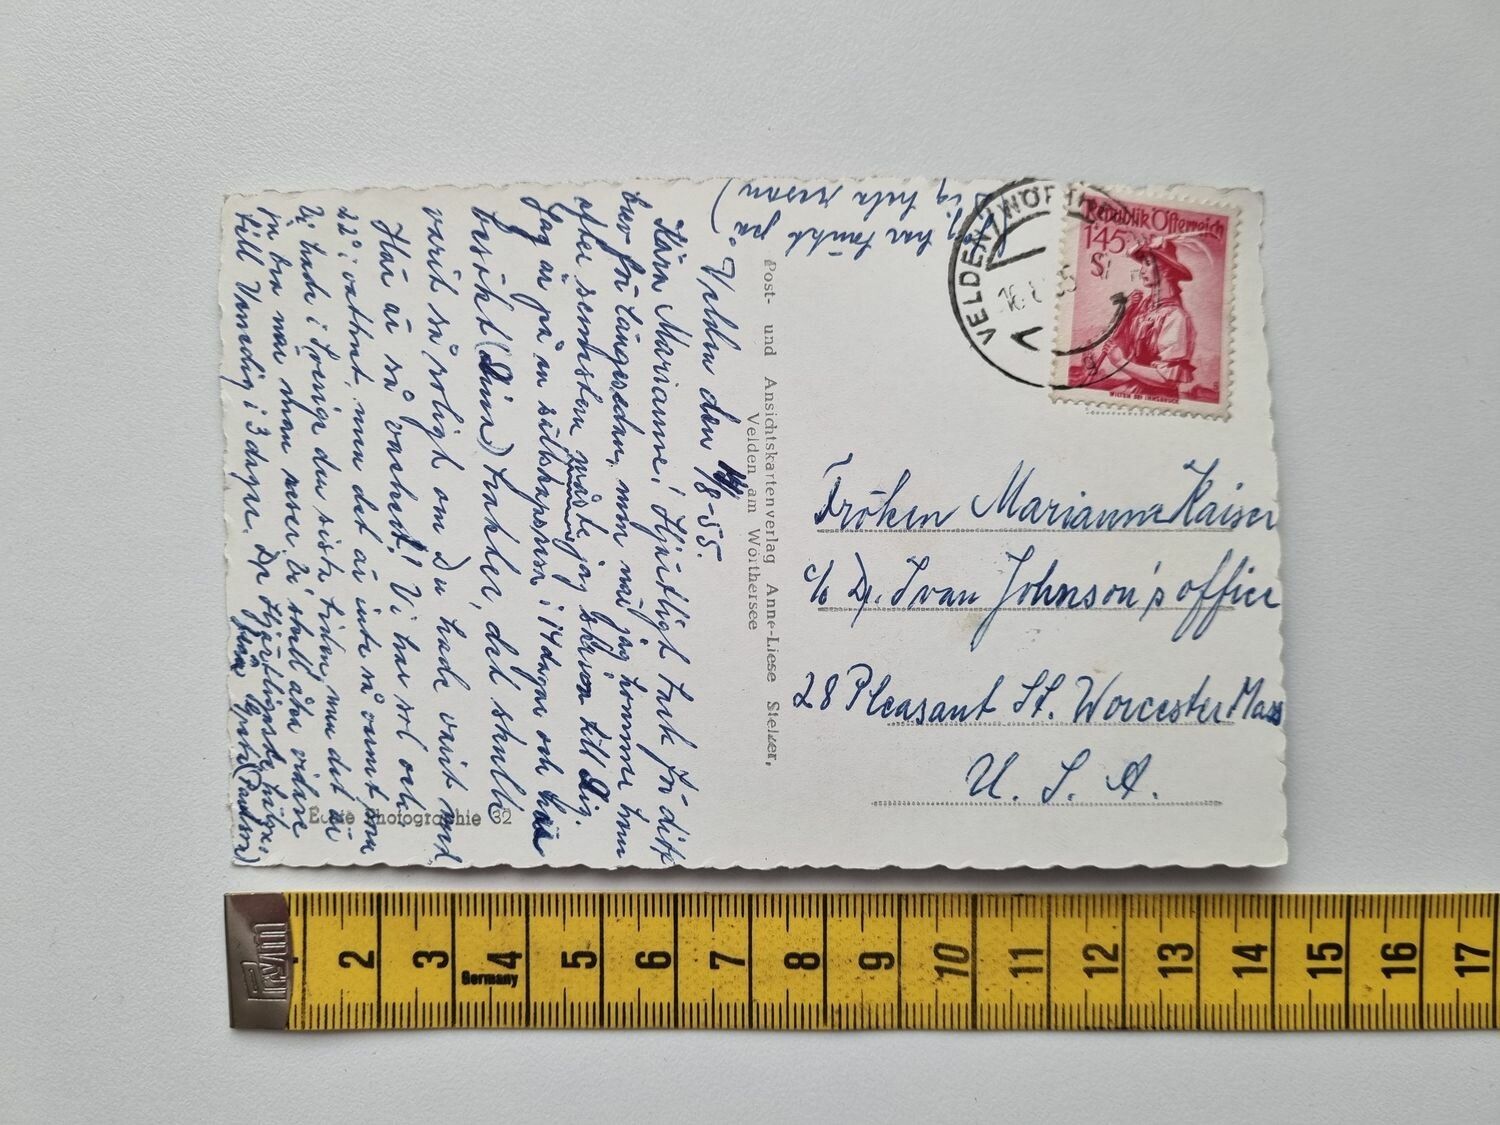 Velden den 14/8-55.
Kära Marianne! Hjärtligt tack för ditt
brev för längesedan, men när jag kommer hem
efter semestern måste jag skriva till Dig.
Jag är på en sällskapsresa i 14 dagar och har
besökt
varit så roligt om Du hade varit med
Här är så vackert! Vi har sol och
22° i vattnet, men det är inte så varmt som
vi hade i Sverige den sista tiden, men det är
ju bra när man reser. Vi skall åka vidare
till Venedig i 3 dagar. De hjärtligaste hälsn.
från
Jag har tänkt på
Dig hela resan)
Post- und Ansichtskartenverlag Anne-Liese Stelzer,
Velden am Wörthersee
Echte Photographie 32
VELDEN
Republik Österreich
1·45
S
WILTEN BEI INNSBRUCK
Fröken Marianne Kaiser
c/o Dr. Ivan Johnson's office
28 Pleasant St. Worcester Mass
U. S. A.
2 3 4 5 6 7 8 9 10 11 12 13 14 15 16 17
Germany